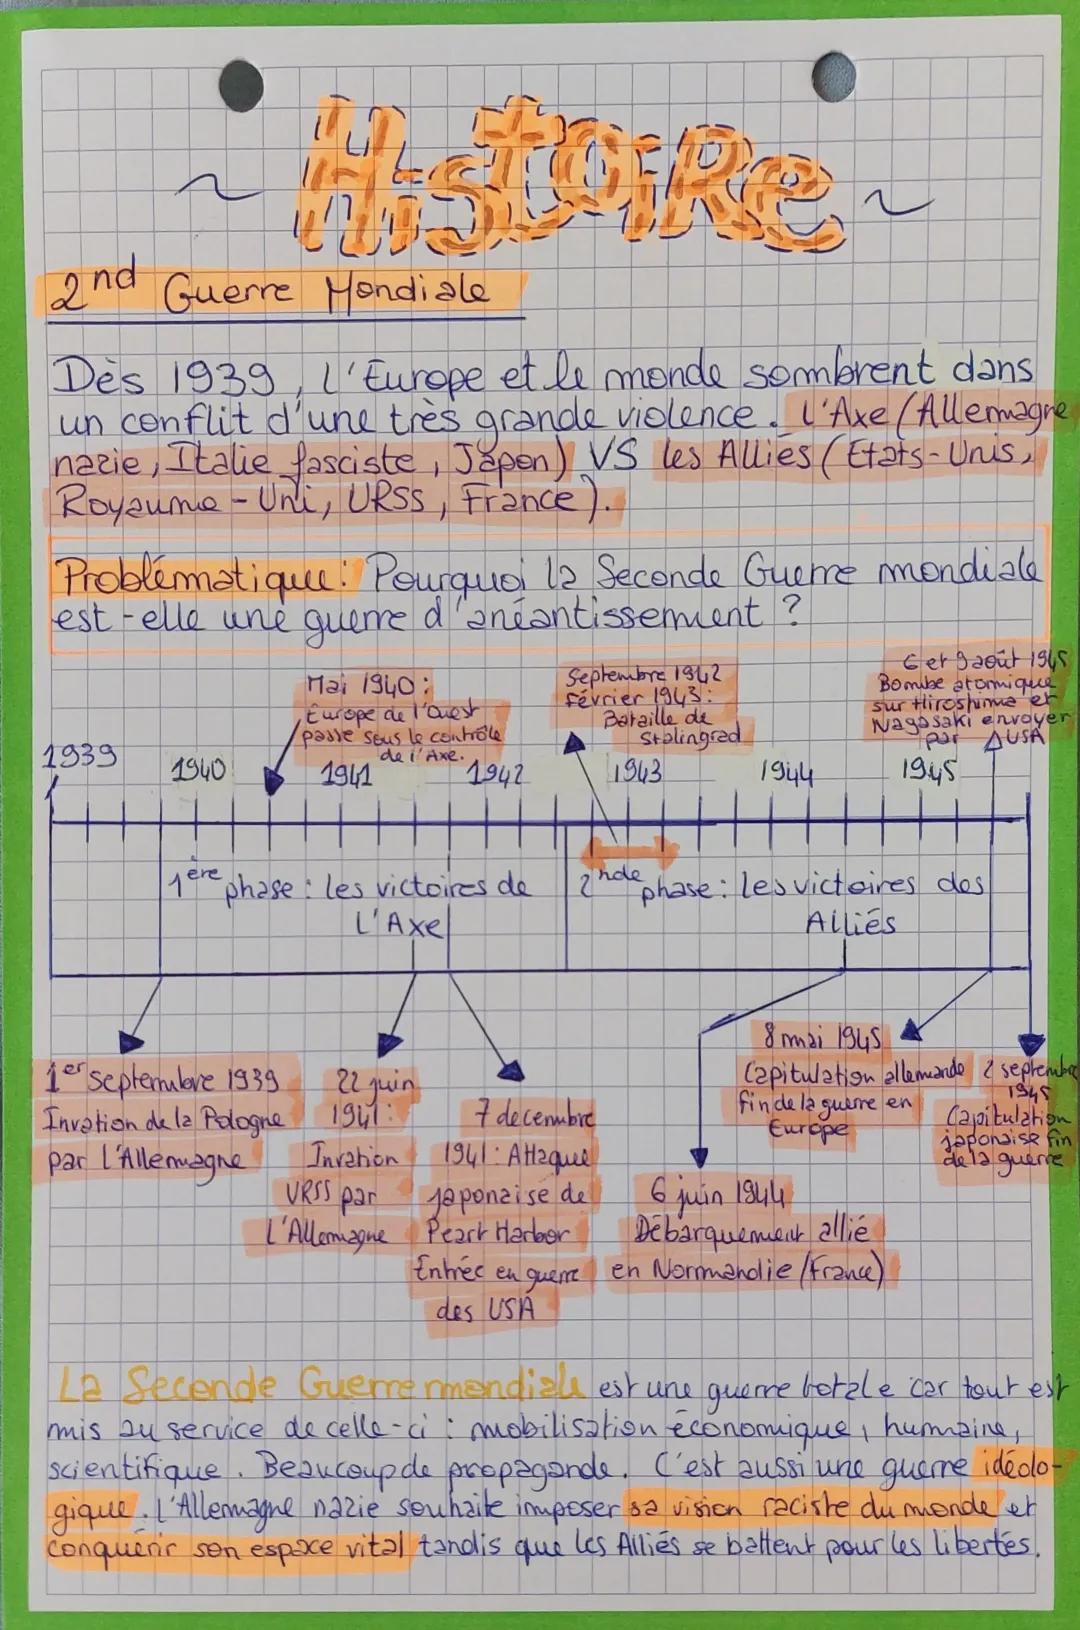 ~ HistoiRe ~
2nd Guerre Mondiale
Dès 1939, l'Europe et le monde sombrent dans
un conflit d'une très grande violence. L'Axe (Allemagne
nazie, Italie fasciste, Japon) VS les Alliés (Etats-Unis,
Royaume-Uni, URSS, France).
Problématique: Pourquoi la Seconde Guerre mondiale
est-elle une guerre d'anéantissement ?
Mai 1940:
Europe de l'Ouest
passe sous le contrôle
de l'Axe.
Septembre 1942
Février 1943:
Bataille de
Stalingrad
6 et 9 août 1945
Bombe atomique
sur Hiroshima et
Nagasaki envoyer
par USA
1939 1940 1941 1942 1943 1944 1945
1ère phase : les victoires de
L'Axe
2nde phase : les victoires des
Alliés
1er Septembre 1939
Invation de la Pologne
par L'Allemagne
22 juin
1941:
Invation
URSS par
L'Allemagne
7 decembre
1941: Attaque
japonaise de
Pearl Harbor
Entrée en guerre
des USA
6 juin 1944
Débarquement allié
en Normandie (France)
8 mai 1945
Capitulation allemande
fin de la guerre en
Europe
2 septembre
1945
Capitulation
japonaise fin
de la guerre
La Seconde Guerre mondiale est une guerre totale car tout est
mis au service de celle-ci : mobilisation économique, humaine,
scientifique. Beaucoup de propagande. C'est aussi une guerre idéolo-
gique. L'Allemagne nazie souhaite imposer sa vision raciste du monde et
conquérir son espace vital tandis que les Alliés se battent pour les libertés.